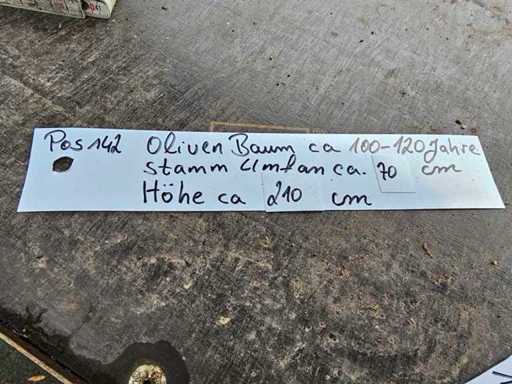 Pos 142 Oliven Baum ca 100-120 Jahre
Stamm Umfan ca. 70 cm
Höhe ca 210 cm